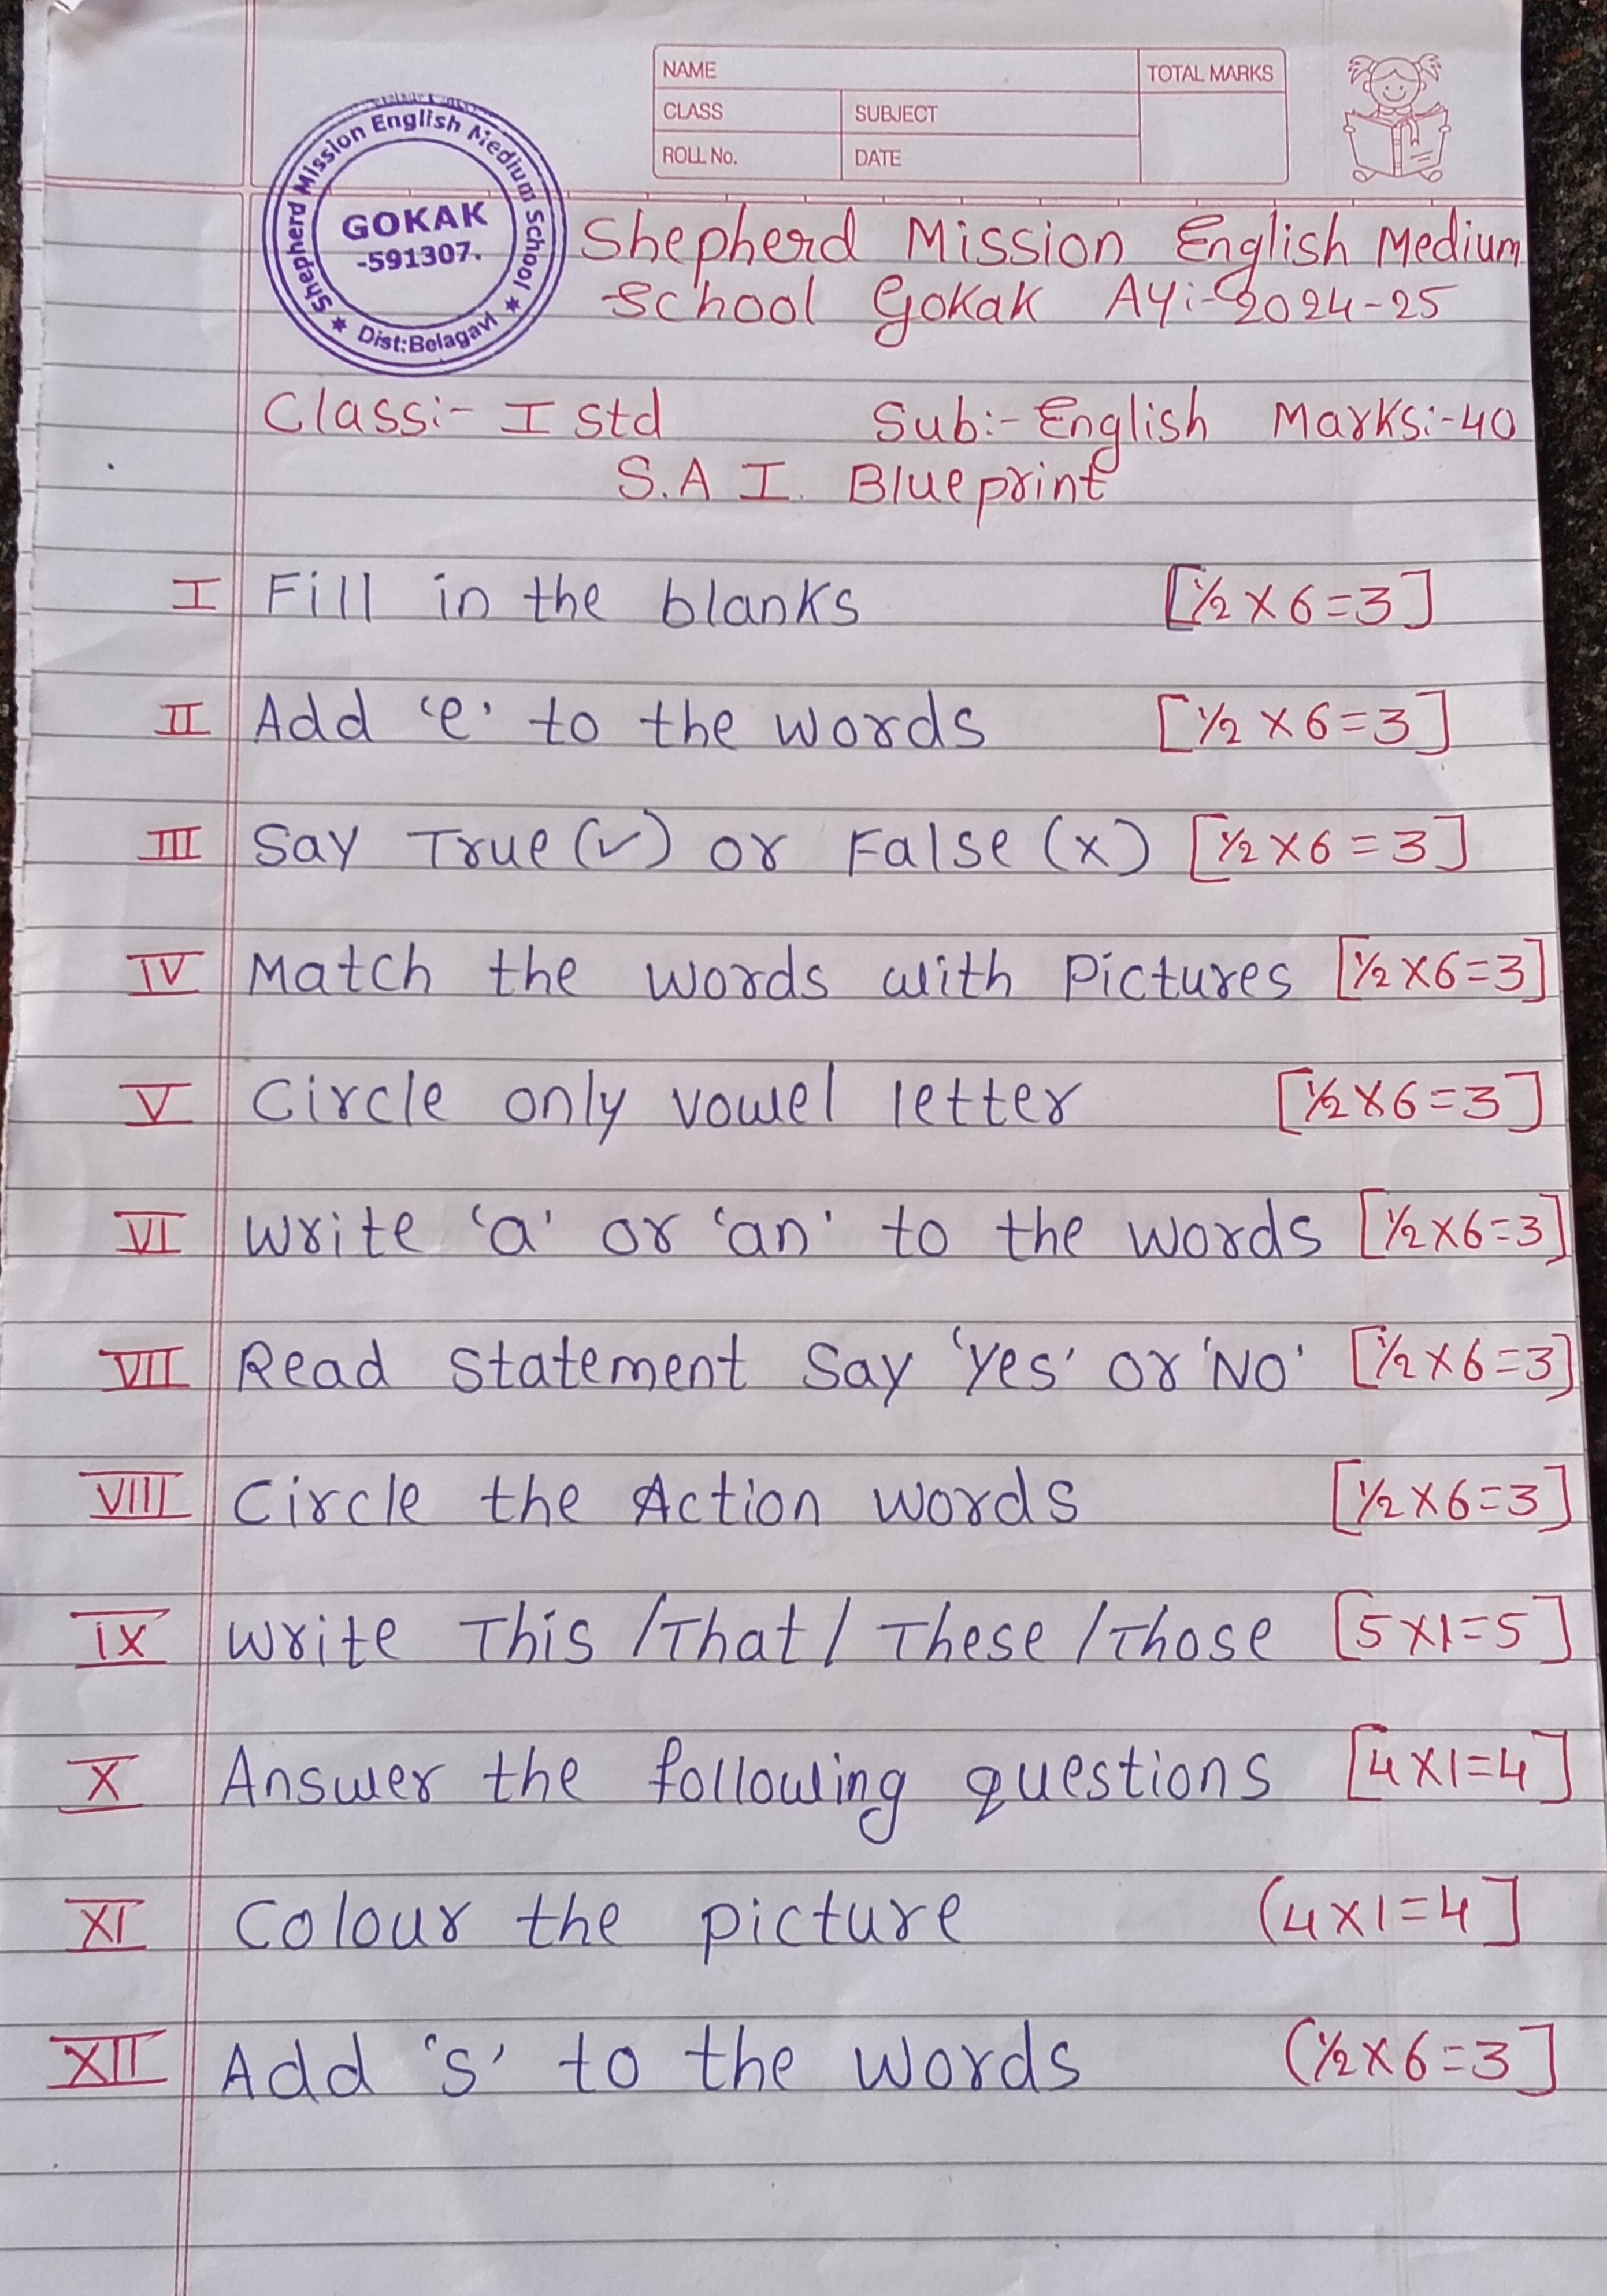 NAME
TOTAL MARKS
CLASS
SUBJECT
ROLL No.
DATE
Shepherd Mission English Medium School
GOKAK
-591307.
Dist:Belagavi
Shepherd Mission English Medium
School Gokak AY:-2024-25
Class:- I std Sub:- English Marks:-40
S.A I. Blueprint
I Fill in the blanks [½ X 6=3]
II Add 'e' to the words [½ X 6=3]
III Say True (✓) or False (x) [½ X 6 = 3]
IV Match the words with Pictures [½ X 6=3]
V Circle only vowel letter [½ X 6=3]
VI Write 'a' or 'an' to the words [½ X 6=3]
VII Read Statement Say 'Yes' or 'NO' [½ X 6=3]
VIII Circle the Action words [½ X 6=3]
IX Write This /That / These /Those [5 X1=5]
X Answer the following questions [4 X1=4]
XI Colour the picture (4 X1=4]
XII Add 's' to the words (½ X 6=3]